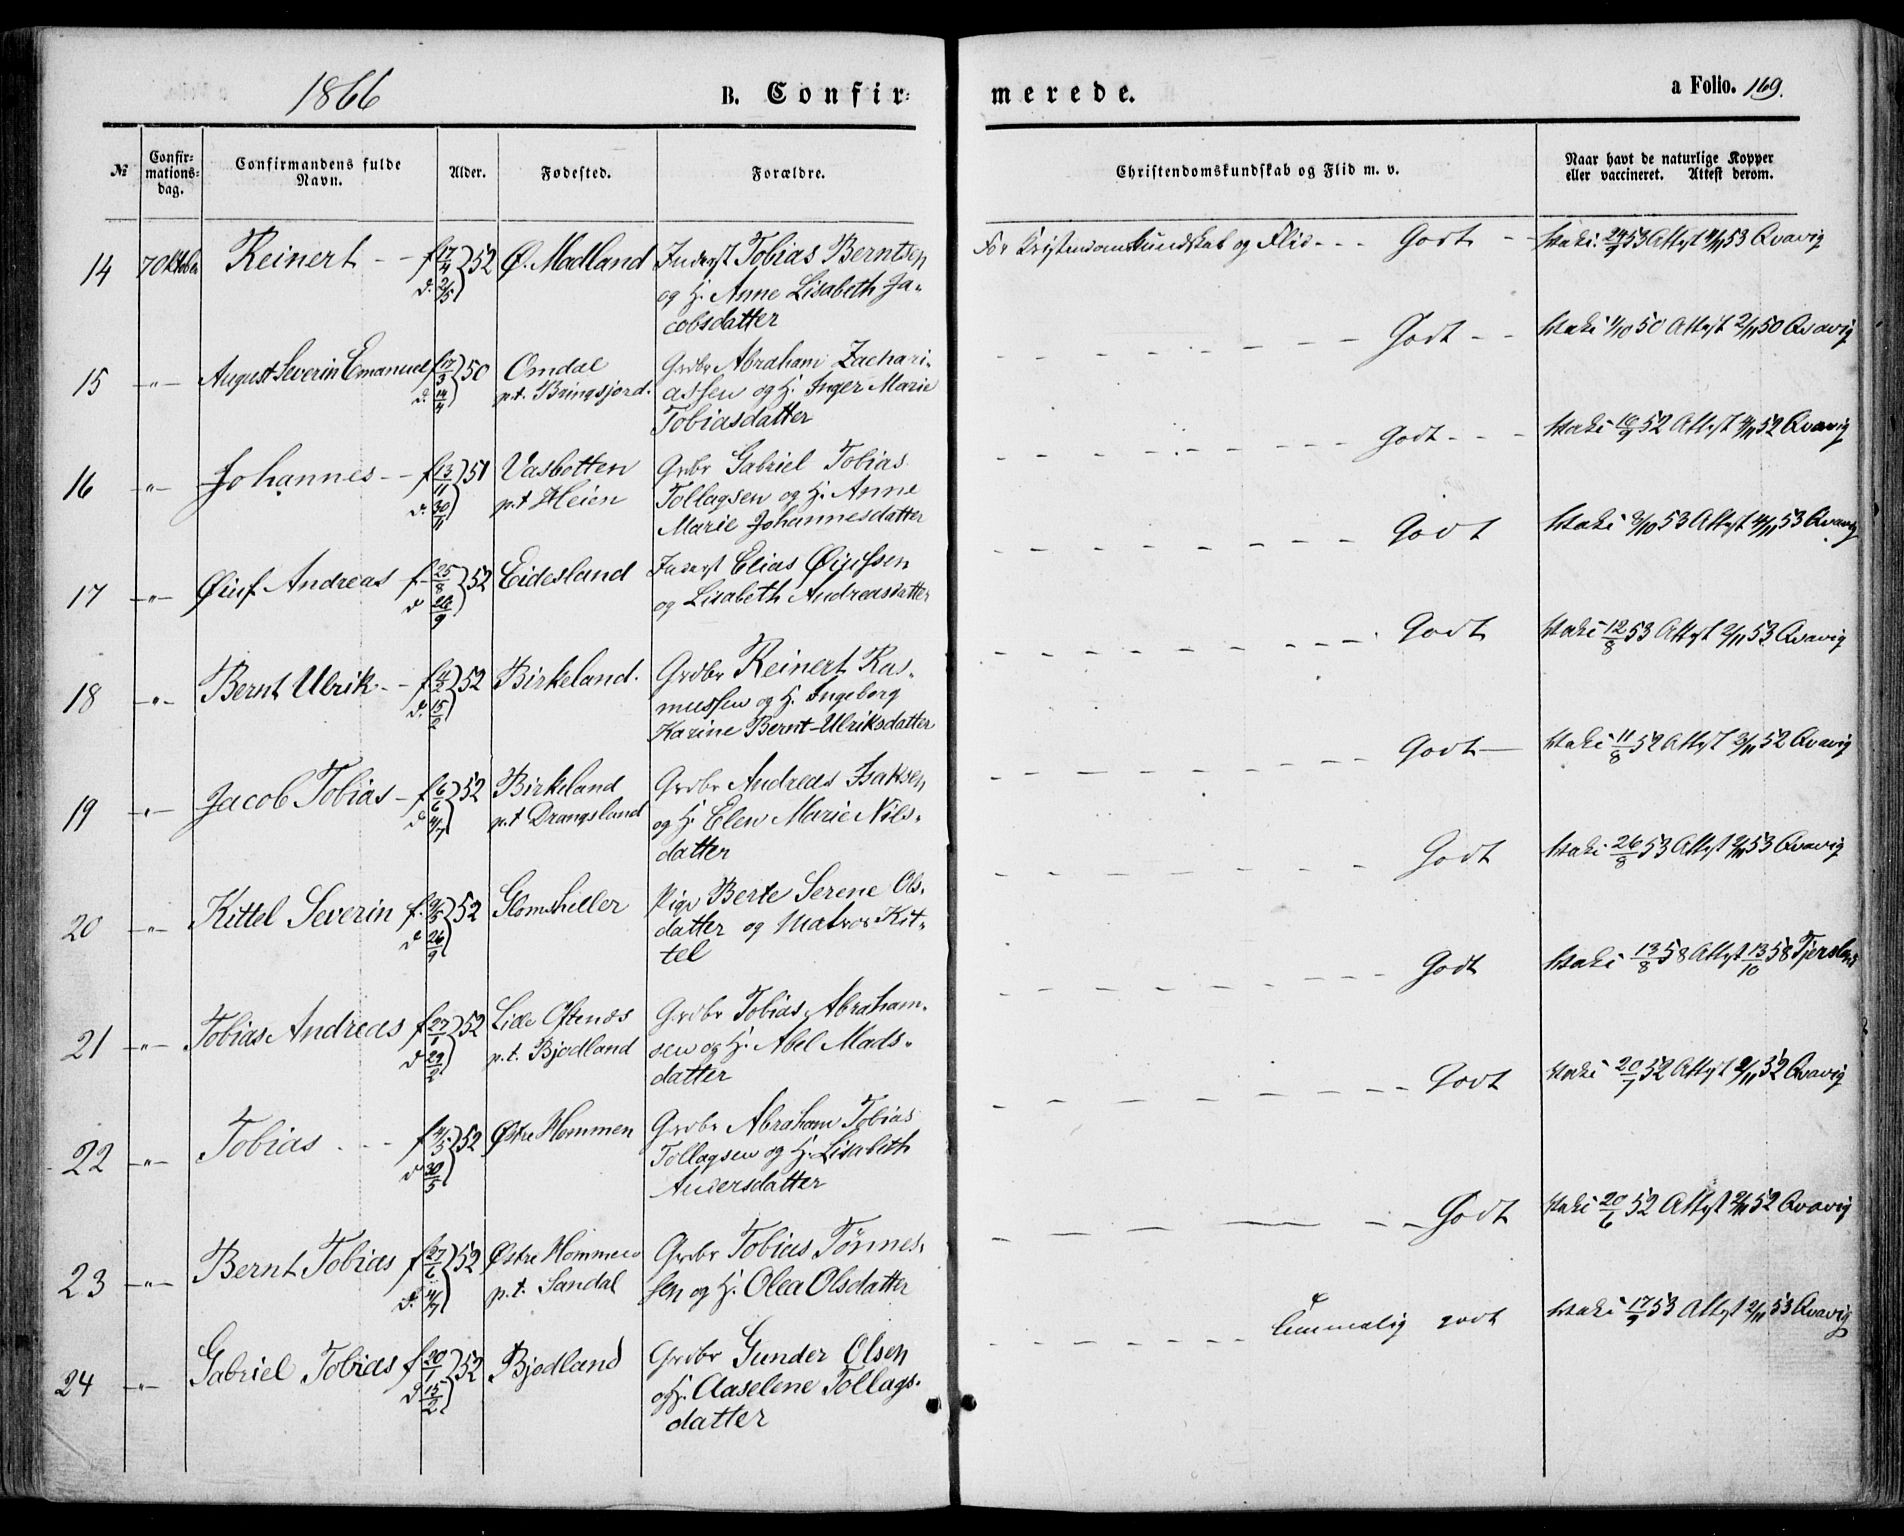 1866 B. Confir- merede. a Folio. 169.
№ Confir-mations-dag. Confirmandens fulde Navn. Alder. Fødested. Forældre. Christendomskundskab og Flid m. v. Naar havt de naturlige Kopper eller vaccineret. Attest derom.
14 7 Oktober Reinert - - f 17/4 52 Ø. Madland Inderst Tobias Berntsen
d. 2/5 og H. Anne Lisabeth Ja-
cobsdatter
For Kristendomskundskab og Flid - - - Godt - - 53 Attest 53 Qvavig
15 -"- August Severin Emanuel f 17/3 50 Omdal Grdbr Abraham Zachari-
d. 14/4 p.t. Bringsjord. assen og H. Inger Marie
Tobiasdatter
Godt - - 50 Attest 2/11 50 Qvavig
16 -"- Johannes - - f 13/11 51 Vasbotten Grdbr Gabriel Tobias
d. 30/11 p.t Heien Tollagsen og H. Anne
Marie Johannesdatter
Godt - - - 52 Attest 52 Qvavig
17 -"- Øiuf Andreas f 25/8 52 Eidesland Inderst Elias Øiufsen
d 26/9 og Lisabeth Andreasdatter
Godt 53 Attest 53 Qvavig
18 -"- Bernt Ulrik - - f 4/2 52 Birkeland. Grdbr Reinert Ras-
d. 15/2 mussen og H. Ingeborg
Karine Bernt-Ulriksdatter
Godt 12/8 53 Attest 2/11 53 Qvavig
19 -"- Jacob Tobias - f 6/6 52 Birkeland Grdbr Andreas Isaksen
d 4/7 p.t Drangsland og H. Elen Marie Nils-
datter
Godt - 11/8 52 Attest 2/11 52 Qvavig
20 -"- Kittel Severin f. 9/5 52 Glomsheller Pige Berte Serene Ols-
d 26/9 datter og Matros Kit-
tel
Godt 26/8 53 Attest 2/11 53 Qvavig
21 -"- Tobias Andreas f 27/1 52 Lide Oftenæs Grdbr Tobias Abraham-
d 29/2 p.t. Bjodland sen og H. Abel Mads-
datter
Godt 13/8 58 Attest 13/10 58 Tjersland
22 -"- Tobias - - - f 4/5 52 Østre Hommen Grdbr Abraham Tobias
d 30/5 Tollagsen og H. Lisabeth
Andersdatter
Godt 20/7 52 Attest 2/11 52 Qvavig
23 -"- Bernt Tobias f 27/6 52 Østre Hommen Grdbr Tobias Tønnes-
d. 4/7 p.t. Sandal sen og H. Olea Olsdatter
Godt 20/6 52 Attest 2/11 52 Qvavig
24 -"- Gabriel Tobias f 20/1 52 Bjodland Grdbr Gunder Olsen
d 15/2 og H. Aaselene Tollags-
datter
temmelig godt 17/9 53 Attest 2/11 53 Qvavig